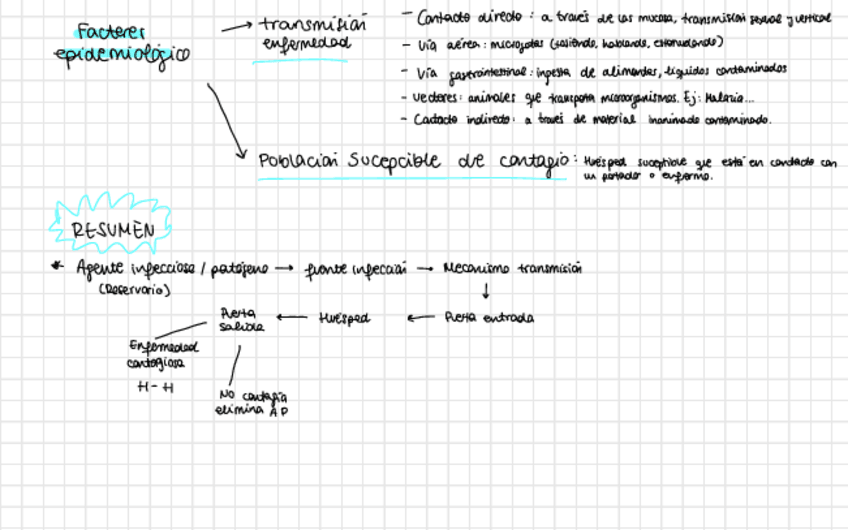 Factores epidemiológico
→ transmisión enfermedad
- Contacto directo: a través de las mucosa, transmisión sexual y vertical
- Vía aérea: microgotas (tosiendo, hablando, estornudando)
- Vía gastrointestinal: ingesta de alimentos, líquidos contaminados
- Vectores: animales que transporta microorganismos. Ej: Malaria...
- Cactacto indirecto: a través de material inanimado contaminado.
Población sucepcible de contagio: Huésped suceptible que está en contacto con
un portador o enfermo.
RESUMEN
* Agente infeccioso / patógeno → fuente infección → Mecanismo transmisión
(Reservorio)
↓
Puerta salida ← Huésped ← Puerta entrada
Enfermedad contagiosa
H-H
No contagia
elimina AP